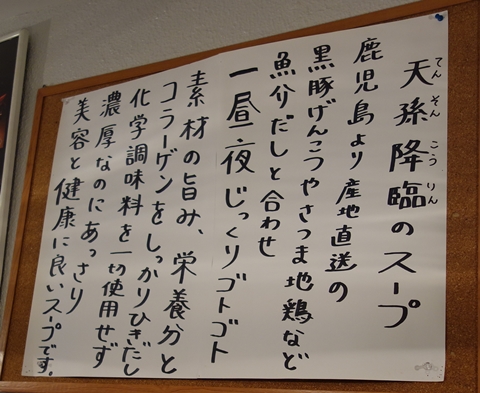 天孫降臨のスープ
てんそんこうりん
鹿児島より産地直送の
黒豚げんこつやさつま地鶏など
魚介だしと合わせ
一昼夜じっくりゴトゴト
素材の旨み、栄養分と
コラーゲンをしっかりひきだし
化学調味料を一切使用せず
濃厚なのにあっさり
美容と健康に良いスープです。